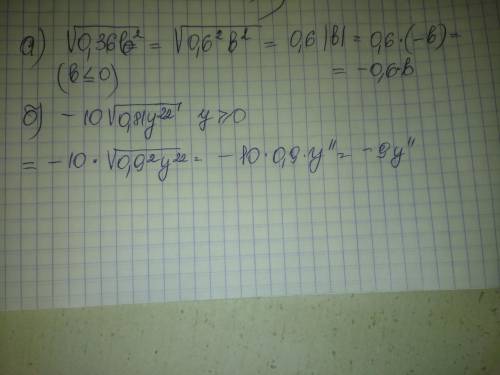 а) √0,36b² = √0,6²b² = 0,6|b| = 0,6·(-b) =
(b≤0) = -0,6b
б) -10√0,81y²² y≥0
= -10·√0,9²y²² = -10·0,9·y¹¹ = -9y¹¹